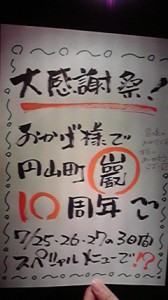 大感謝祭！
おかげ様で
円山町 巌
10周年
7/25・26・27の3日間
スペシャルメニューで!?